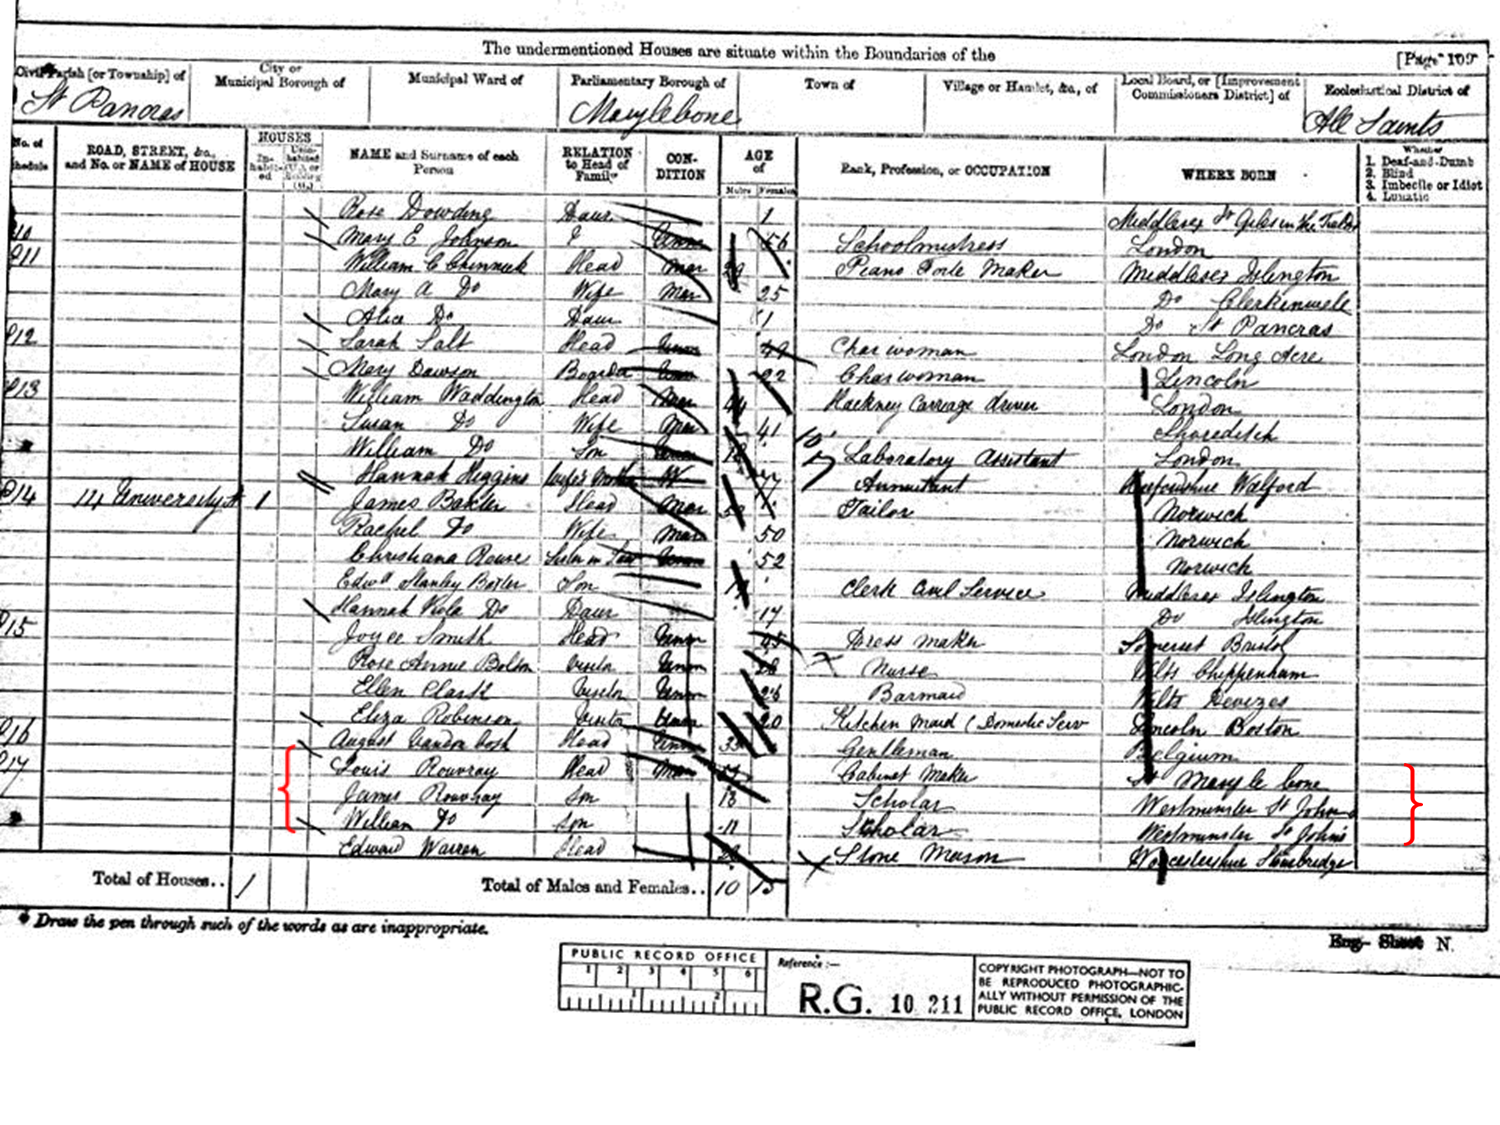 The undermentioned Houses are situate within the Boundaries of the
[Page 109
Civil Parish [or Township] of
City or Municipal Borough of
Municipal Ward of
Parliamentary Borough of
Town of
Village or Hamlet, &c., of
Local Board, or [Improvement Commissioners District] of
Ecclesiastical District of
St Pancras
Marylebone
All Saints
No. of Schedule
ROAD, STREET, &c., and No. or NAME of HOUSE
HOUSES
In-habit-ed
NAME and Surname of each Person
RELATION to Head of Family
CON-DITION
AGE of
Males Females
Rank, Profession, or OCCUPATION
WHERE BORN
Whether
1. Deaf-and-Dumb
2. Blind
3. Imbecile or Idiot
4. Lunatic
Rose Dowding Daur 1 Middlesex St Giles in the
10 Mary E Johnson Unm 56 Schoolmistress London
211 William C Chinnick Head Mar 29 Piano Forte Maker Middlesex Islington
Mary A Do Wife Mar 25 Do Clerkenwell
Alice Do Daur 1 Do St Pancras
212 Sarah Salt Head Unm 49 Charwoman London Long Acre
Mary Dawson Boarder Unm 22 Charwoman Lincoln
213 William Waddington Head Mar 44 Hackney Carriage driver London
Susan Do Wife Mar 41 Shoreditch
William Do Son Unm 18 Laboratory Assistant London
Hannah Higgins Wife's Mother W 77 Annuitant Walford
214 114 University St 1 James Baxter Head Mar Tailor Norwich
Rachel Do Wife Mar 50 Norwich
Christiana Rouse Sister in Law Unm 52 Norwich
Edwd Stanley Baxter Son 19 Clerk Civil Service Middlesex Islington
Hannah Do Daur 17 Do Islington
215 Joyce Smith Head Unm 45 Dress maker Somerset Bristol
Rose Annie Bolson Visitor Unm 28 Nurse Wilts Chippenham
Ellen Clark Visitor Unm 26 Barmaid Wilts Devizes
Eliza Robinson Visitor Unm 20 Kitchen maid (Domestic Serv Lincoln Boston
216 August Head Unm 33 Gentleman Belgium
217 Louis Rouvray Head Mar Cabinet Maker St Mary le bone
James Rouvray Son 13 Scholar Westminster St Johns
William Do Son 11 Scholar Westminster St Johns
Edward Warren Head Stone Mason Worcestershire Stourbridge
Total of Houses.. 1
Total of Males and Females.. 10 15
* Draw the pen through such of the words as are inappropriate.
Eng- Sheet N.
PUBLIC RECORD OFFICE
1 2 3 4 5 6
1 2
Reference :—
R.G. 10 211
COPYRIGHT PHOTOGRAPH—NOT TO
BE REPRODUCED PHOTOGRAPHIC-
ALLY WITHOUT PERMISSION OF THE
PUBLIC RECORD OFFICE, LONDON